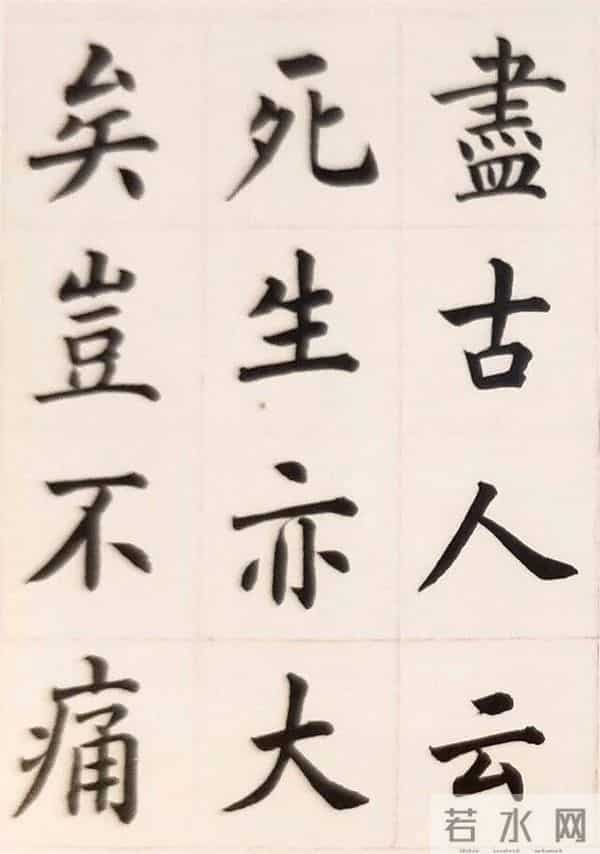 盡古人云
死生亦大
矣豈不痛
若水网